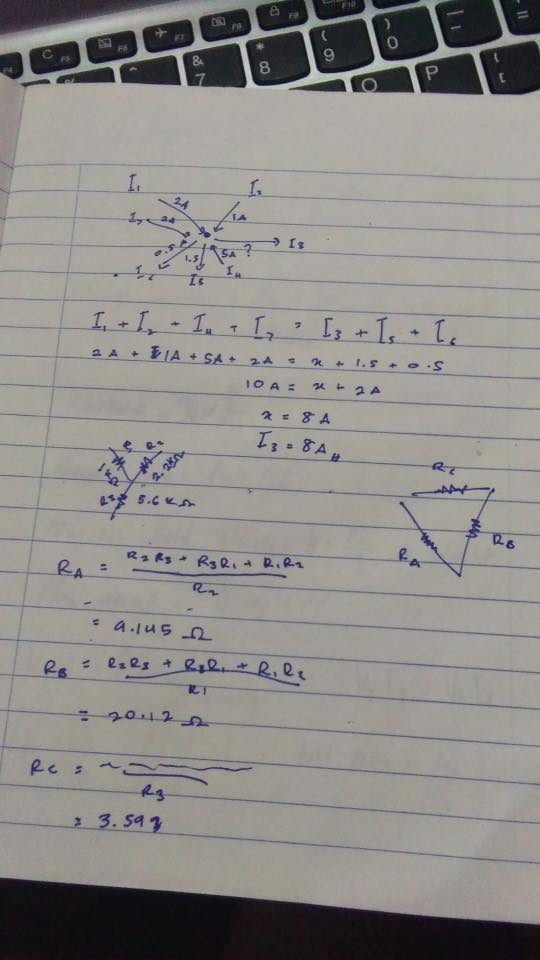 F4
C F5
F6
F7
F8
F9
F10
%
& 7
* 8
( 9
) 0
O
P
I₁
I₂
2A
1A
I₇
2A
?
I₃
0.5 A
1.5
5A
I₆
I₅
I₄
I₁ + I₂ + I₄ + I₇ = I₃ + I₅ + I₆
2A + 1A + 5A + 2A = x + 1.5 + 0.5
10A = x + 2A
x = 8A
I₃ = 8A
R₁
R₂
2.2kΩ
R₃
5.6 kΩ
RC
RA
RB
RA = R₂R₃ + R₃R₁ + R₁R₂
R₂
= 9.145 Ω
RB = R₂R₃ + R₃R₁ + R₁R₂
R₁
= 20.12 Ω
RC =
R₃
= 3.593